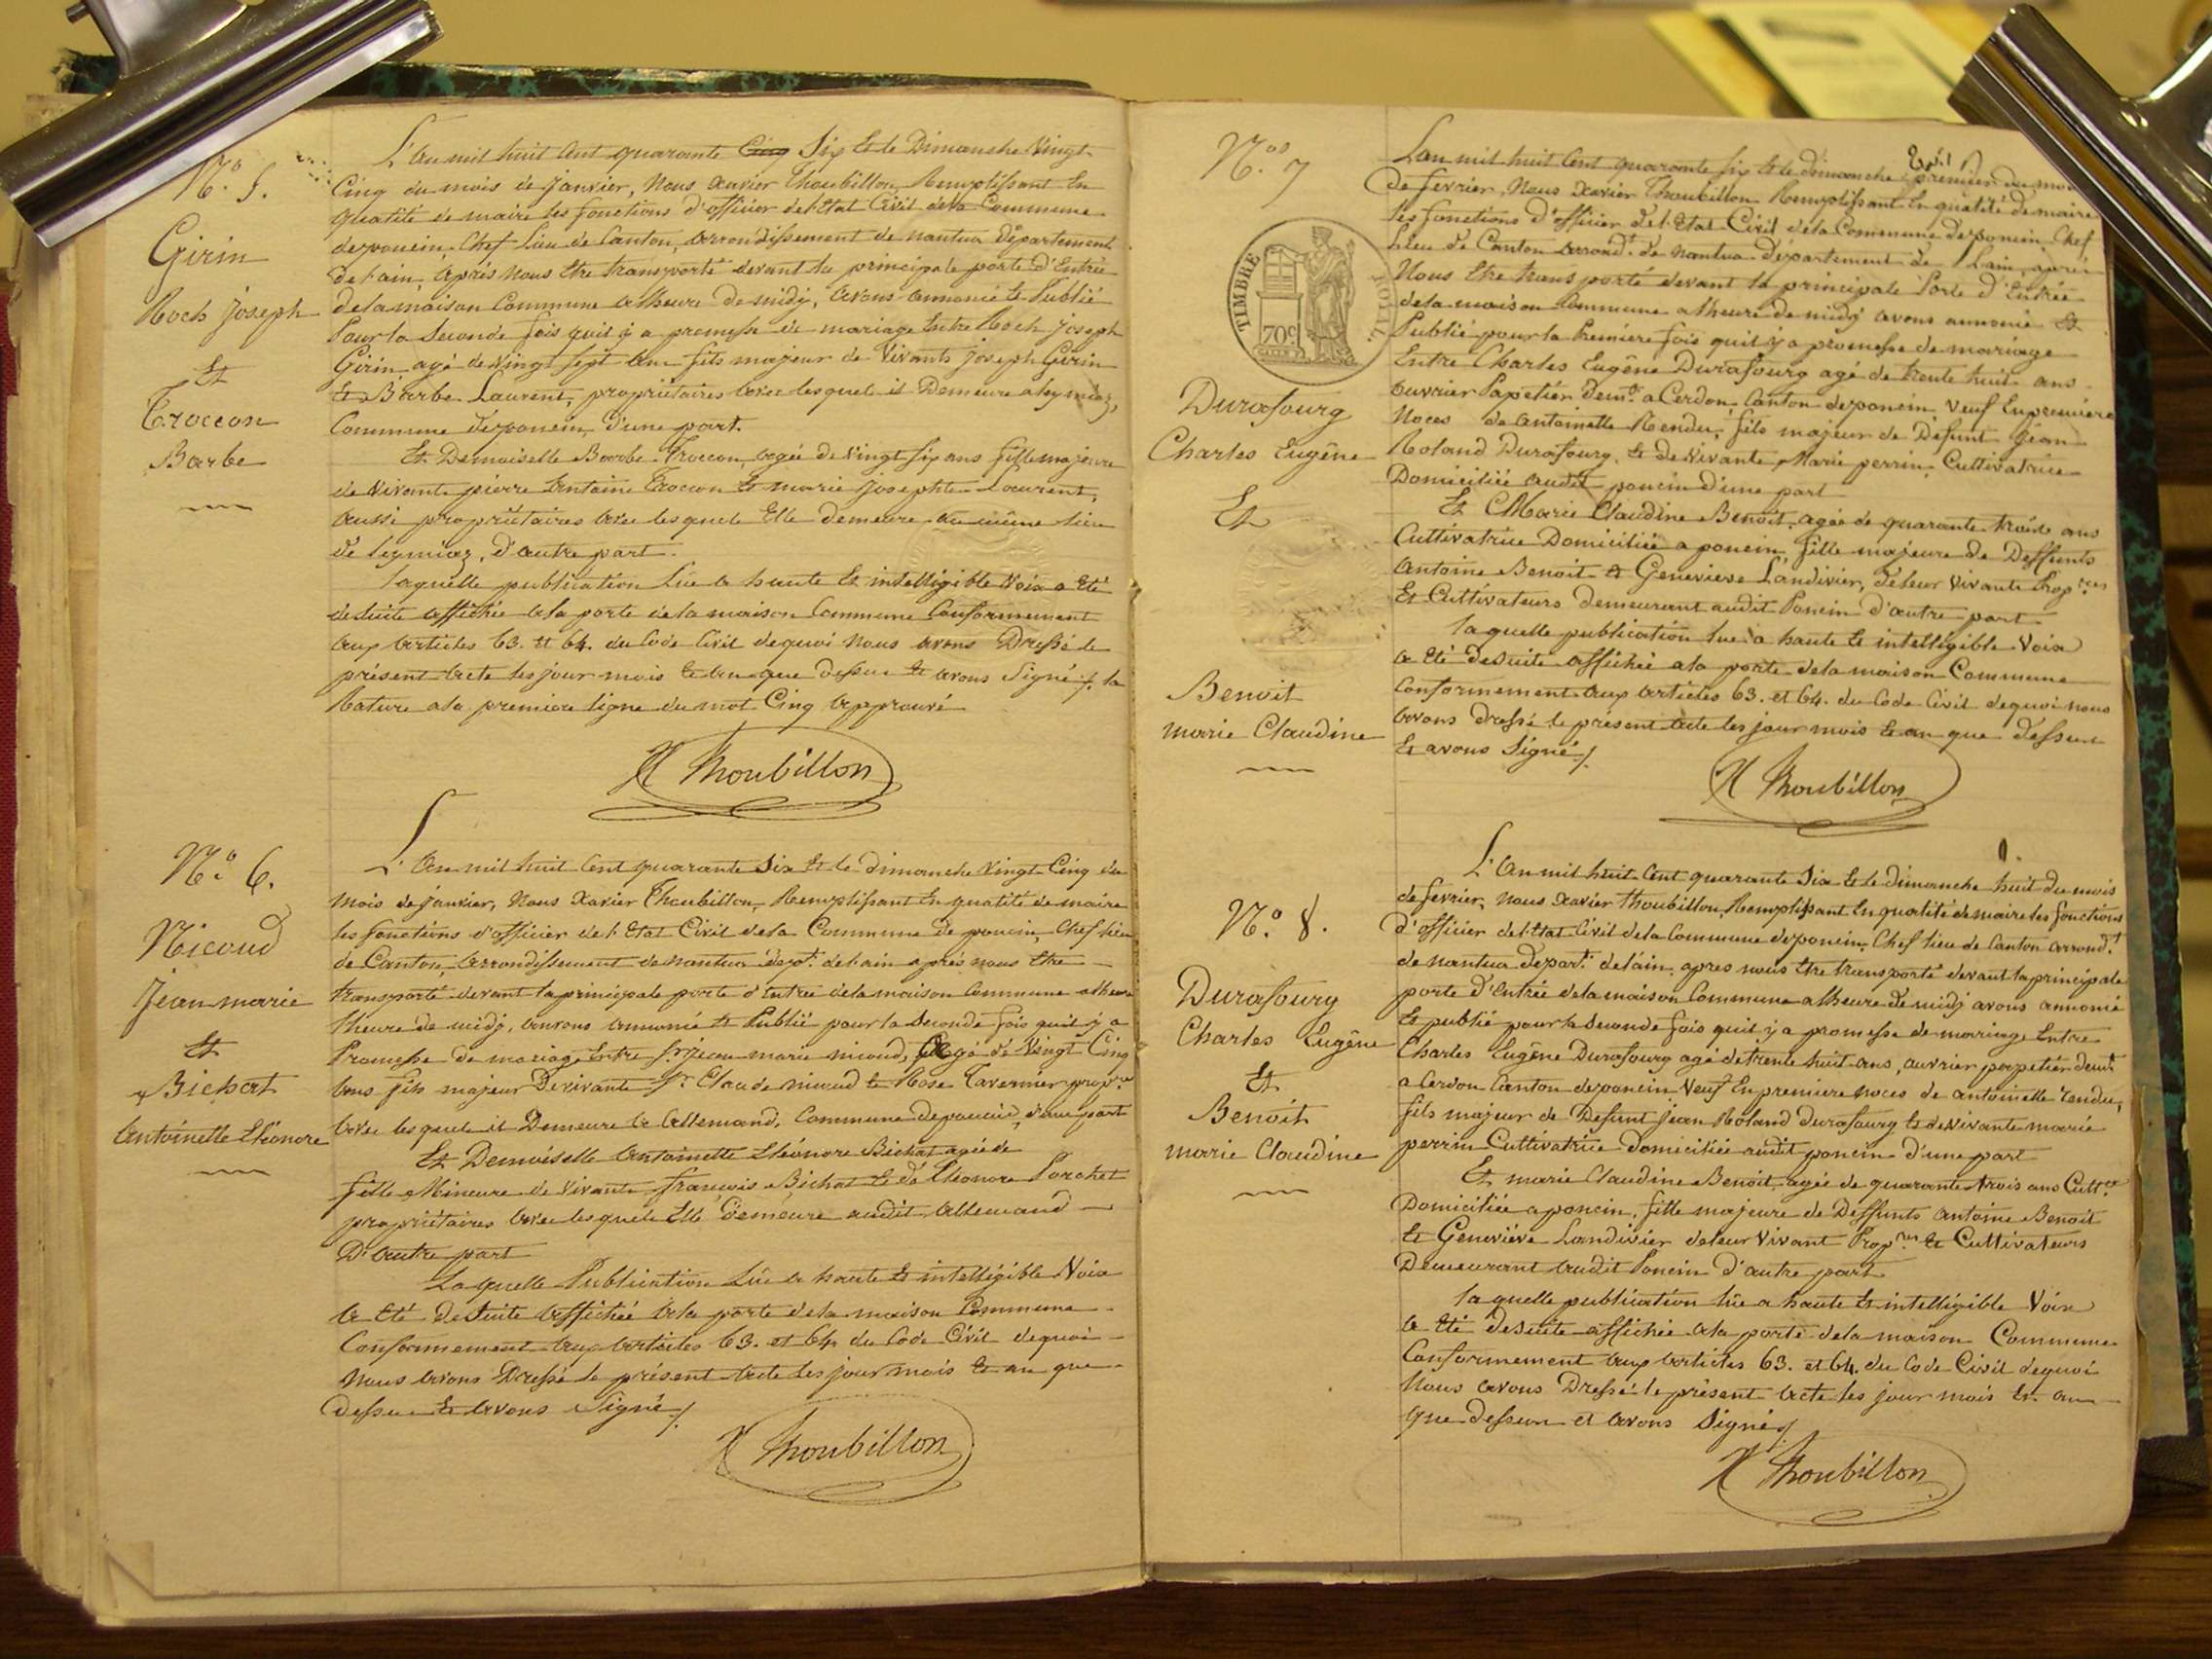 N.° 5.
Girin
Roch Joseph
Et
Troccon
Barbe
L'an mil huit Cent quarante Cinq Six Et le Dimanche Vingt
Cinq du mois de janvier, Nous Xavier Thoubillon, Remplissant En
qualité de maire les fonctions d'officier de l'Etat Civil de la Commune
de poncin, Chef lieu de Canton, arrondissement de nantua Département
de l'ain, après Nous Etre transporté devant la principale porte d'Entrée
de la maison Commune a l'heure de midy, avons annoncé Et Publié
Pour la Seconde fois quil y a promesse de mariage Entre Roch Joseph
Girin, agé de Vingt Sept ans fils majeur de Vivants joseph Girin
Et Barbe Laurent, propriétaires avec lesquels il Demeure a leymiaz,
Commune de poncin, D'une part.
Et Demoiselle Barbe Troccon, agée de Vingt Six ans fille majeure
de Vivants pierre Antoine Troccon Et marie Josephte Laurent,
aussi propriétaires avec lesquels Elle demeure au même lieu
de leymiaz, d'autre part.
laquelle publication lue a haute Et intelligible Voix a Eté
de Suite affichée a la porte de la maison Commune Conformement
aux articles 63. et 64. du Code Civil de quoi Nous avons Dressé le
présent acte les jour mois Et an que dessus Et avons Signé ./. la
Rature a la première ligne du mot Cinq approuvé
X Thoubillon
N.° 6.
Nicoud
Jean marie
Et
Bichat
Antoinette Eléonore
L'An mil huit Cent quarante Six Et le dimanche Vingt Cinq du
Mois de janvier, Nous Xavier Thoubillon, Remplissant En qualité de maire
les fonctions d'officier de l'Etat Civil de la Commune de poncin, Chef lieu
de Canton, arrondissement de nantua dép.t de l'ain après nous Etre
transporté devant la principale porte d'Entrée de la maison Commune a l'heure
l'heure de midy, avons annoncé Et Publié pour la Seconde fois quil y a
Promesse de mariage Entre S.r jean marie nicoud, agé de Vingt Cinq
ans fils majeur De vivants S.r Claude nicoud Et Rose Tavernier prop.res
avec lesquels il Demeure a allemand, Commune de poncin, d'une part
Et Demoiselle Antoinette Eléonore Bichat agée de
fille Mineure de Vivants françois Bichat Et de Eléonore Porchet
propriétaires avec lesquels Elle demeure audit allemand
D'autre part
Laquelle Publication Lûe a haute Et intelligible Voix
a Eté de Suite affichée a la porte de la maison Commune
Conformement aux articles 63. et 64 du Code Civil de quoi
Nous avons Dressé le présent acte les jour mois Et an que
dessus Et avons Signé ./.
X Thoubillon
N.os 7
TIMBRE ROYAL.
70c
Durafourg
Charles Eugêne
Et
Benoit
marie Claudine
L'an mil huit Cent quarante Six Et le dimanche premier du mois
de fevrier, Nous Xavier Thoubillon Remplissant En qualité de maire
les fonctions d'officier de l'Etat Civil de la Commune de poncin Chef
Lieu de Canton arrond.t de nantua département de L'ain, après
Nous Etre transporté devant la principale Porte d'Entrée
de la maison Commune a l'heure de midy avons annoncé Et
Publié pour la Première fois quil y a promesse de mariage
Entre Charles Eugêne Durafourg agé de trente huit ans
ouvrier Papetier dem.t a Cerdon Canton de poncin Veuf En première
Noces de Antoinette Rendu, fils majeur de Défunt Jean
Roland Durafourg, Et de Vivante Marie perrin Cultivatrice
Domiciliée audit poncin d'une part
Et Marie Claudine Benoit, agée de quarante trois ans
Cultivatrice Domiciliée a poncin fille majeure de Deffunts
Antoine Benoit Et Genevieve Landivier, de leur Vivants Prop.res
Et Cultivateurs demeurant audit Poncin d'autre part
laquelle publication lue a haute Et intelligible Voix
a Eté de Suite affichée a la porte de la maison Commune
Conformement aux articles 63. et 64. du Code Civil de quoi nous
avons dressé le présent acte les jour mois Et an que dessus
Et avons Signé ./.
X Thoubillon
N.° 8.
Durafourg
Charles Eugêne
Et
Benoit
marie Claudine
L'An mil huit Cent quarante Six Et le dimanche huit du mois
de fevrier, nous Xavier Thoubillon, Remplissant En qualité de maire les fonctions
d'officier de l'Etat Civil de la Commune de poncin, Chef lieu de Canton arrond.t
de nantua Depart.t de l'ain, après nous Etre transporté devant la principale
porte d'Entrée de la maison Commune a l'heure de midy avons annoncé
Et publié pour la Seconde fois quil y a promesse de mariage Entre
Charles Eugêne Durafourg agé de trente huit ans, ouvrier papetier dem.t
a Cerdon Canton de poncin Veuf En première noces de antoinette rendu,
fils majeur de Défunt jean Roland durafourg Et de vivante marie
perrin Cultivatrice domiciliée audit poncin d'une part
Et marie Claudine Benoit, agée de quarante trois ans Cult.ce
Domiciliée a poncin, fille majeure de Deffunts Antoine Benoit
Et Geneviève Landivier de leur Vivant Prop.res Et Cultivateurs
Demeurant audit Poncin d'autre part
laquelle publication lûe a haute Et intelligible Voix
a Eté de Suite affichée a la porte de la maison Commune
Conformement aux articles 63. et 64. du Code Civil de quoi
Nous avons Dressé le présent acte les jour mois Et an
que dessus et avons Signé ./.
X Thoubillon